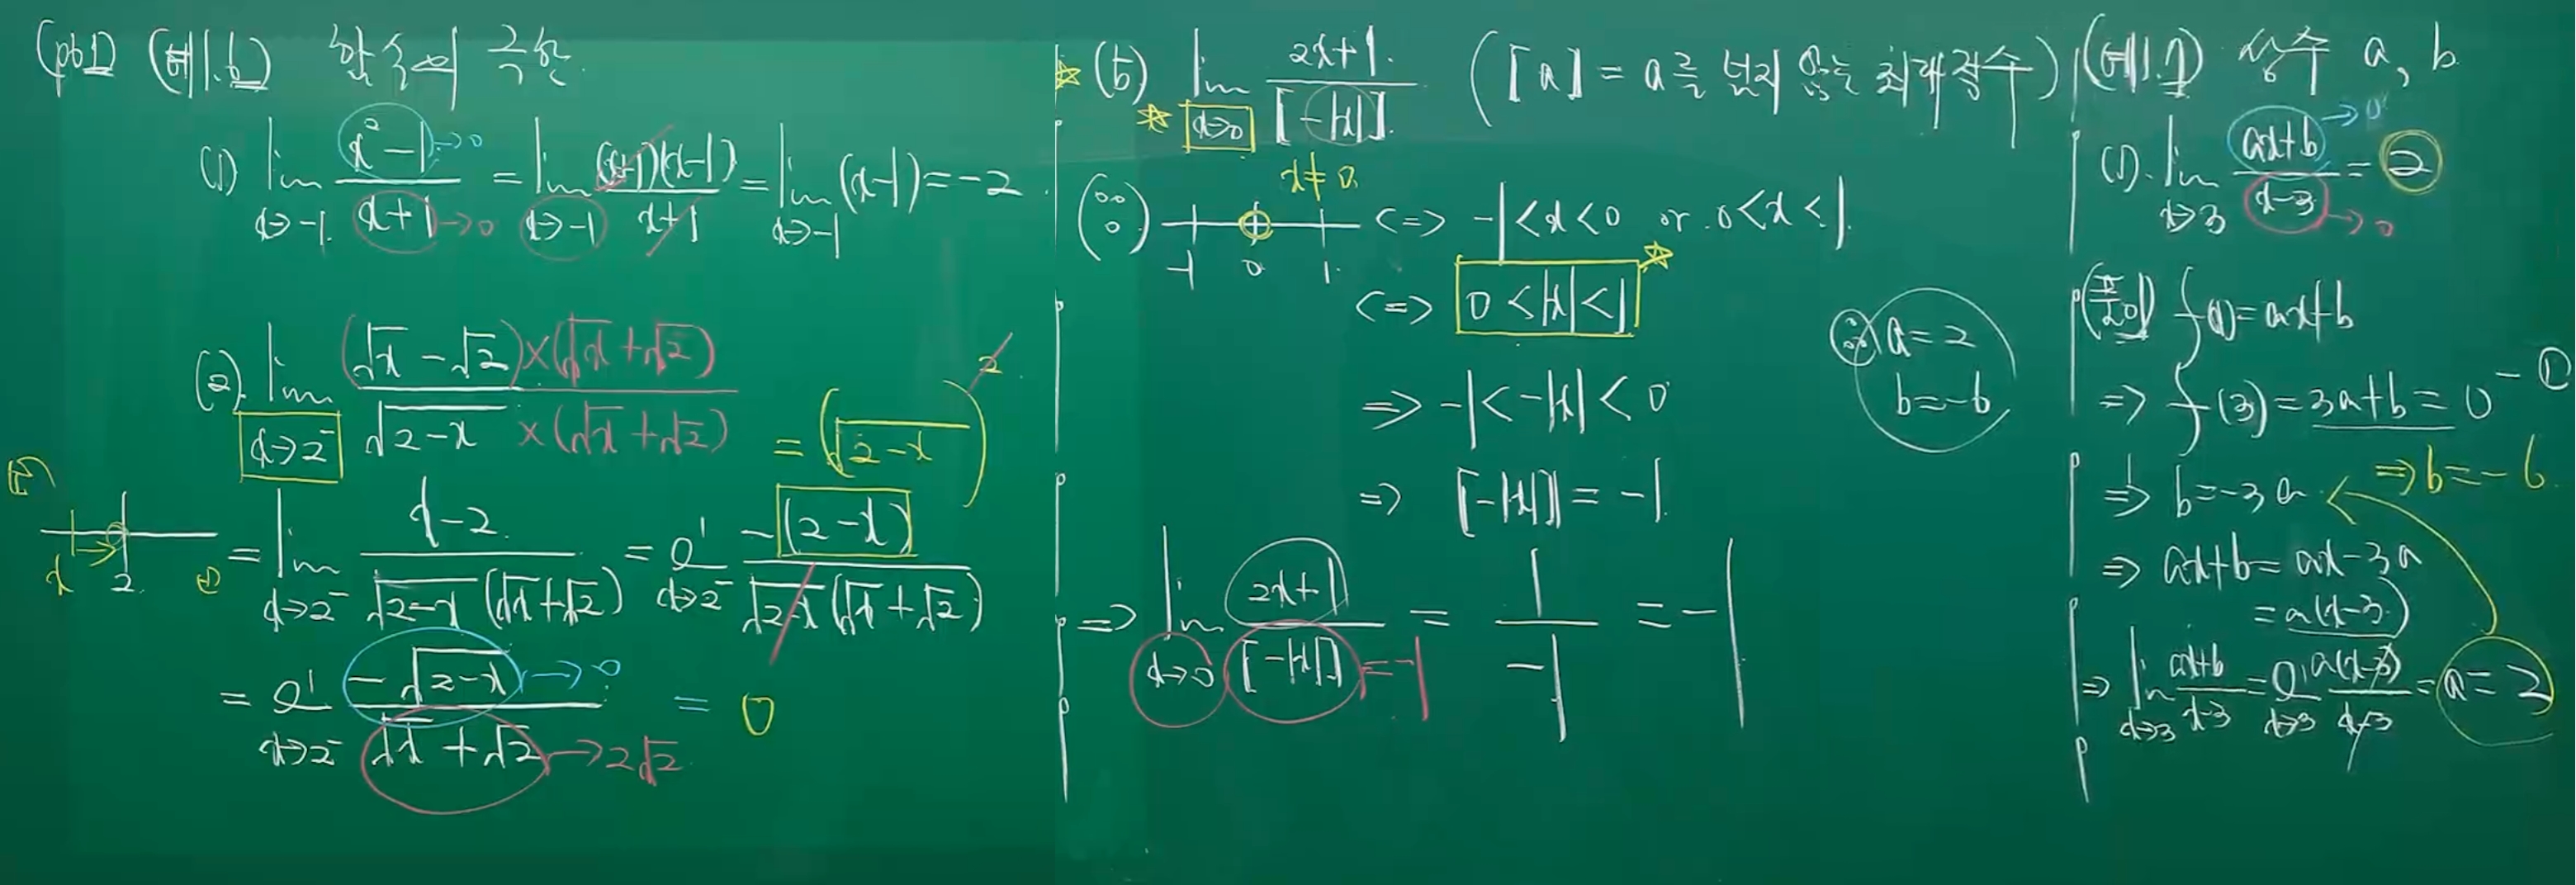 (p61) (예1.6) 함수의 극한
(1) lim x→-1 (x²-1 →0)/(x+1 →0) = lim x→-1 (x+1)(x-1)/(x+1) = lim x→-1 (x-1) = -2.
(2). lim x→2⁻ (√x - √2)×(√x+√2) / √(2-x) ×(√x+√2)
= (√(2-x))²
x 2
= lim x→2⁻ (x-2)/(√(2-x)(√x+√2)) = lim x→2⁻ -(2-x)/(√(2-x)(√x+√2))
= lim x→2⁻ (-√(2-x) →0)/(√x+√2 →2√2) = 0
(5) lim x→0 (2x+1)/[-|x|]. ([a] = a를 넘지 않는 최대정수)
x≠0.
(∵) -1 0 1 <=> -1<x<0 or 0<x<1.
<=> 0<|x|<1
=> -1<-|x|<0
=> [-|x|] = -1.
=> lim x→0 (2x+1)/([-|x|] =-1) = 1/-1 = -1
∴ a=2
b=-6
(예1.7) 상수 a, b
(1). lim x→3 (ax+b →0)/(x-3 →0) = 2
f(x)=ax+b
=> f(3)=3a+b=0 -①
=> b=-3a => b=-6
=> ax+b=ax-3a
=a(x-3)
=> lim x→3 (ax+b)/(x-3) = lim x→3 a(x-3)/(x-3) = a=2